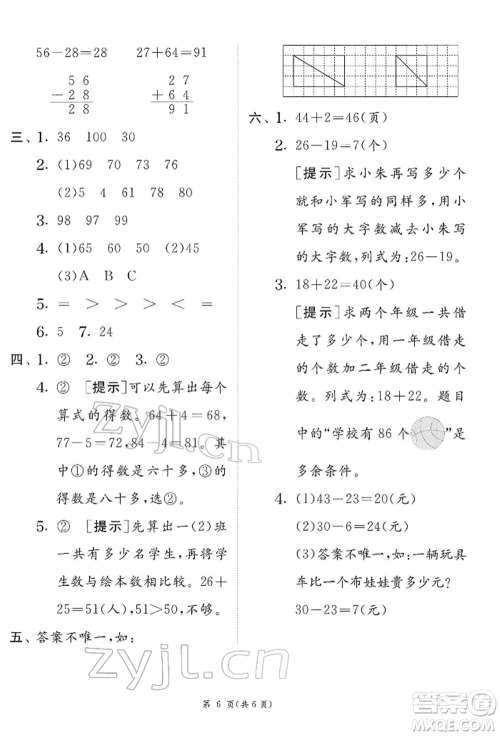 56－28＝28　27＋64＝91
5 6　2 7
－2 8　＋6 4
2 8　9 1
三、1. 36　100　30
2. (1)69　70　73　76
(2)5　4　61　78　80
3. 98　97　99
4. (1)65　50　60　(2)45
(3)A　B　C
5. ＝　＞　＞　＜　＝
6. 5　7. 24
四、1. ②　2. ②　3. ②
4. ②　[提示]可以先算出每个
算式的得数。64＋4＝68，
77－5＝72，84－4＝80。其
中①的得数是六十多，③的
得数是八十多，选②。
5. ②　[提示]先算出一(2)班
一共有多少名学生，再将学
生数与绘本数相比较。26＋
25＝51(人)，51＞50，不够。
五、答案不唯一，如：
六、1. 44＋2＝46(页)
2. 26－19＝7(个)
[提示]求小朱再写多少个
就和小军写的同样多，用小
军写的大字数减去小朱写
的大字数，列式为：26－19。
3. 18＋22＝40(个)
[提示]求两个年级一共借
走了多少个，用一年级借走
的个数加二年级借走的个
数。列式为：18＋22。题目
中的“学校有 86 个”是
多余条件。
4. (1)43－23＝20(元)
(2)30－6＝24(元)
(3)答案不唯一，如：一辆玩具
车比一个布娃娃贵多少元？
30－23＝7(元)
第 6 页(共 6 页)
zyjl.cn
zyjl.cn
答案圈
MXQE.COM